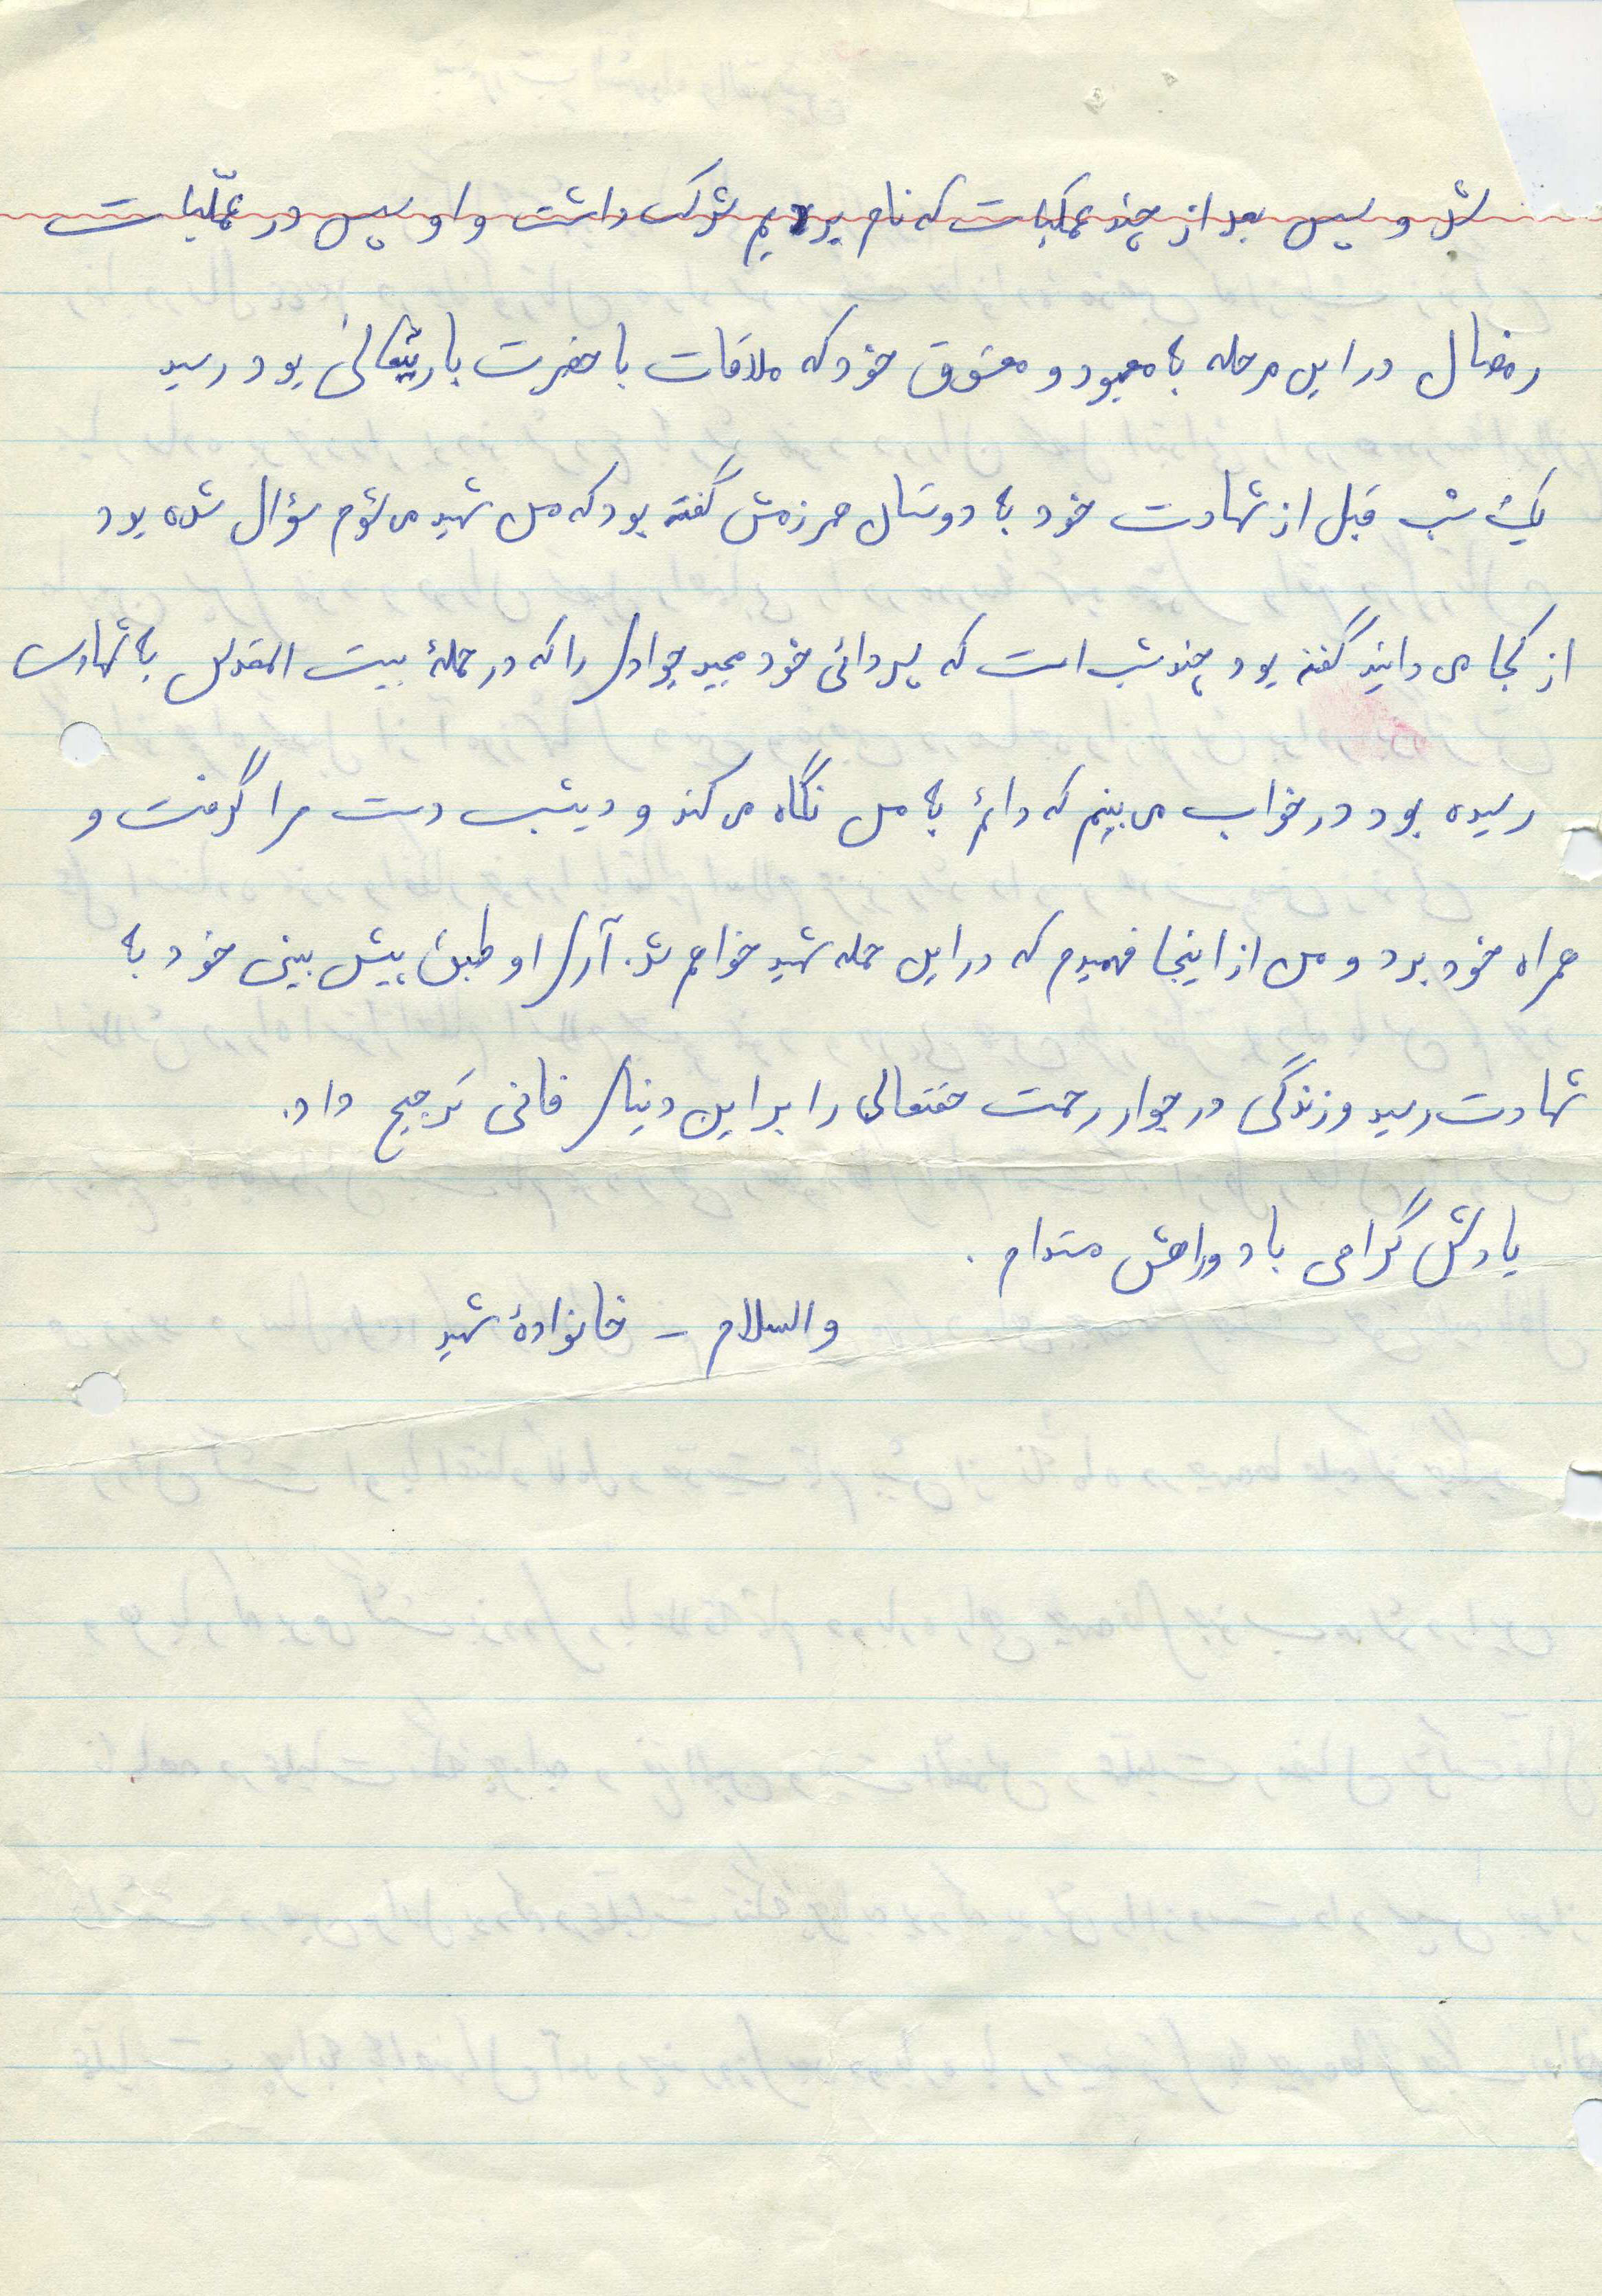 شد و سپس بعد از چند عملیات که نام بردیم شرکت داشت و او سپس در عملّیات
رمضان در این مرحله به معبود و معشوق خود که ملاقات با حضرت باریتعالی بود رسید
یک شب قبل از شهادت خود به دوستان همرزمش گفته بود که من شهید می شوم سؤال شده بود
از کجا می دانید گفته بود چند شب است که پسر دائی خود مجید جوادی را که در حملهٔ بیت المقدس به شهادت
رسیده بود در خواب می بینم که دائم به من نگاه می کند و دیشب دست مرا گرفت و
همراه خود برد و من از اینجا فهمیدم که در این حمله شهید خواهم شد. آری او طبق پیش بینی خود به
شهادت رسید و زندگی در جوار رحمت حقتعالی را بر این دنیای فانی ترجیح داد.
یادش گرامی باد و راهش مستدام .
والسلام - خانوادهٔ شهید